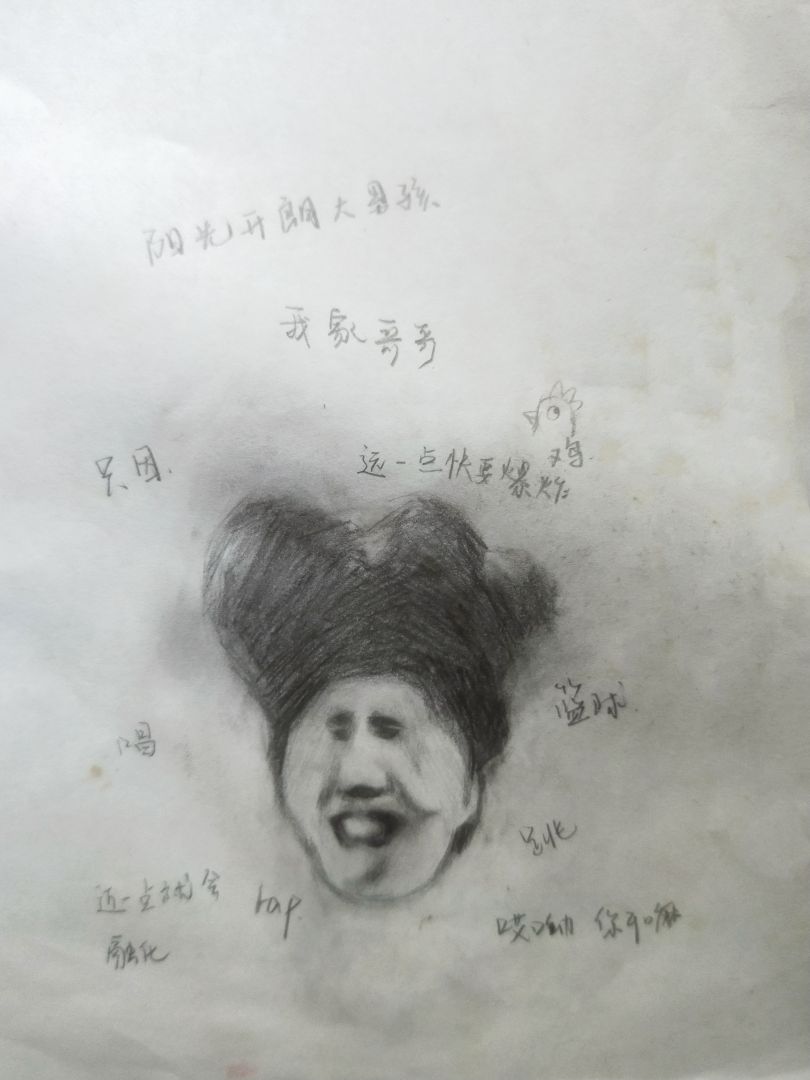 阳光开朗大男孩
我家哥哥
鸡.
只因.
远一点快要爆炸
篮球.
唱
近一点就会
融化
rap.
哎呦 你干嘛